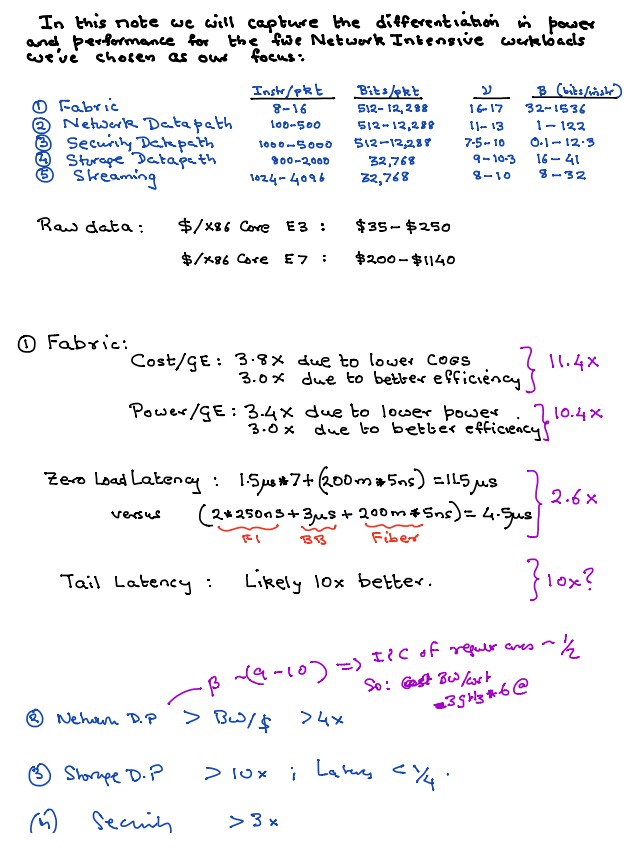 In this note we will capture the differentiation in power
and performance for the five Network Intensive workloads
we've chosen as our focus:
Instr/pkt Bits/pkt ν B (bits/instr)
① Fabric 8-16 512-12,288 16-17 32-1536
② Network Datapath 100-500 512-12,288 11-13 1-122
③ Security Datapath 1000-5000 512-12,288 7.5-10 0.1-12.3
④ Storage Datapath 800-2000 32,768 9-10.3 16-41
⑤ Streaming 1024-4096 32,768 8-10 8-32
Raw data: $/x86 Core E3: $35-$250
$/x86 Core E7: $200-$1140
① Fabric:
Cost/GE: 3.8x due to lower COGS
3.0x due to better efficiency } 11.4x
Power/GE: 3.4x due to lower power.
3.0x due to better efficiency } 10.4x
Zero Load Latency: 1.5μs*7+(200m*5ns) = 11.5μs
versus (2*250ns+3μs+200m*5ns)= 4.5μs } 2.6x
F1 BB Fiber
Tail Latency: Likely 10x better. } 10x?
β ~(9-10) => IPC of regular cores ~ 1/2
So: BW/cost
② Network D.P > BW/$ > 4x
③ Storage D.P > 10x ; Latency < 1/4.
(4) Security > 3x